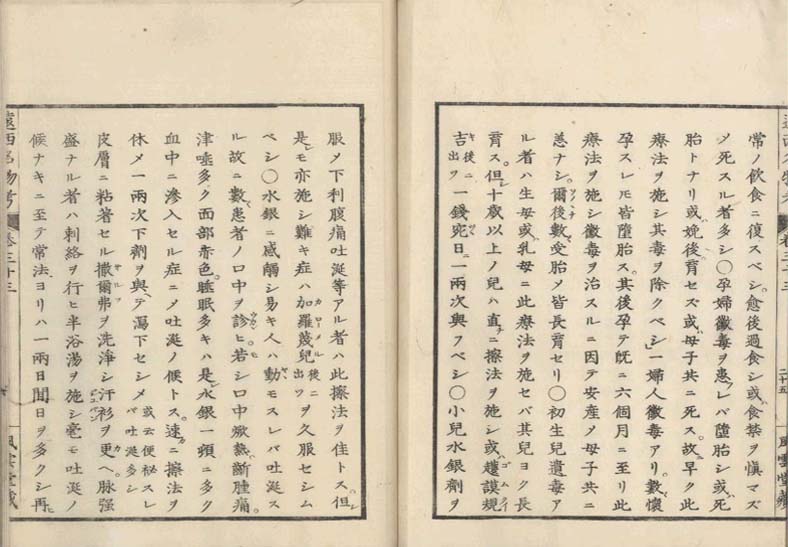 卷三十三
二十五
風雲堂藏
常ノ飲食ニ復スベシ。愈後過食シ或食禁ヲ愼マズ
〆死スル者多シ〇孕婦黴毒ヲ患レバ墮胎シ或死
胎トナリ或娩後育セズ或母子共ニ死ス。故早ク此
療法ヲ施シ其毒ヲ除クベシ一婦人黴毒アリ。數懷
孕スレ𪜈皆墮胎ス。其後孕テ既ニ六個月ニ至リ此
療法ヲ施シ黴毒ヲ治スルニ因テ安産〆母子共ニ
恙ナシ。爾後數受胎〆皆長育セリ〇初生兒遺毒ア
ル者ハ生母或乳母ニ此療法ヲ施セバ其兒ヨク長
育ス。但十歳以上ノ兒ハ直ニ擦法ヲ施シ或護謨規
吉後ニ出ツ一錢宛日一兩次與フベシ〇小兒水銀劑ヲ
服〆下利腹痛吐涎等アル者ハ此擦法ヲ佳トス。但
是𪜈亦施シ難キ症ハ加羅蔑兒後ニ出ツヲ久服セシム
ベシ〇水銀ニ感觸シ易キ人ハ動モスレバ吐涎ス
ル故ニ數患者ノ口中ヲ診ヒ。若シ口中焮熱齗腫痛。
津唾多ク面部赤色。睡眠多キハ是水銀一頭ニ多ク
血中ニ滲入セル症ニ〆吐涎ノ候トス。速ニ擦法ヲ
休メ一兩次下劑ヲ與テ瀉下セシメ或云便秘スレバ吐涎多シ
皮層ニ粘着セル撒爾弗ヲ洗淨シ汗衫ヲ更ヘ。脉强
盛ナル者ハ刺絡ヲ行ヒ半浴湯ヲ施シ毫モ吐涎ノ
候ナキニ至テ常法ヨリハ一兩日間日ヲ多クシ再
遠西名物考
卷三十三
風雲堂藏